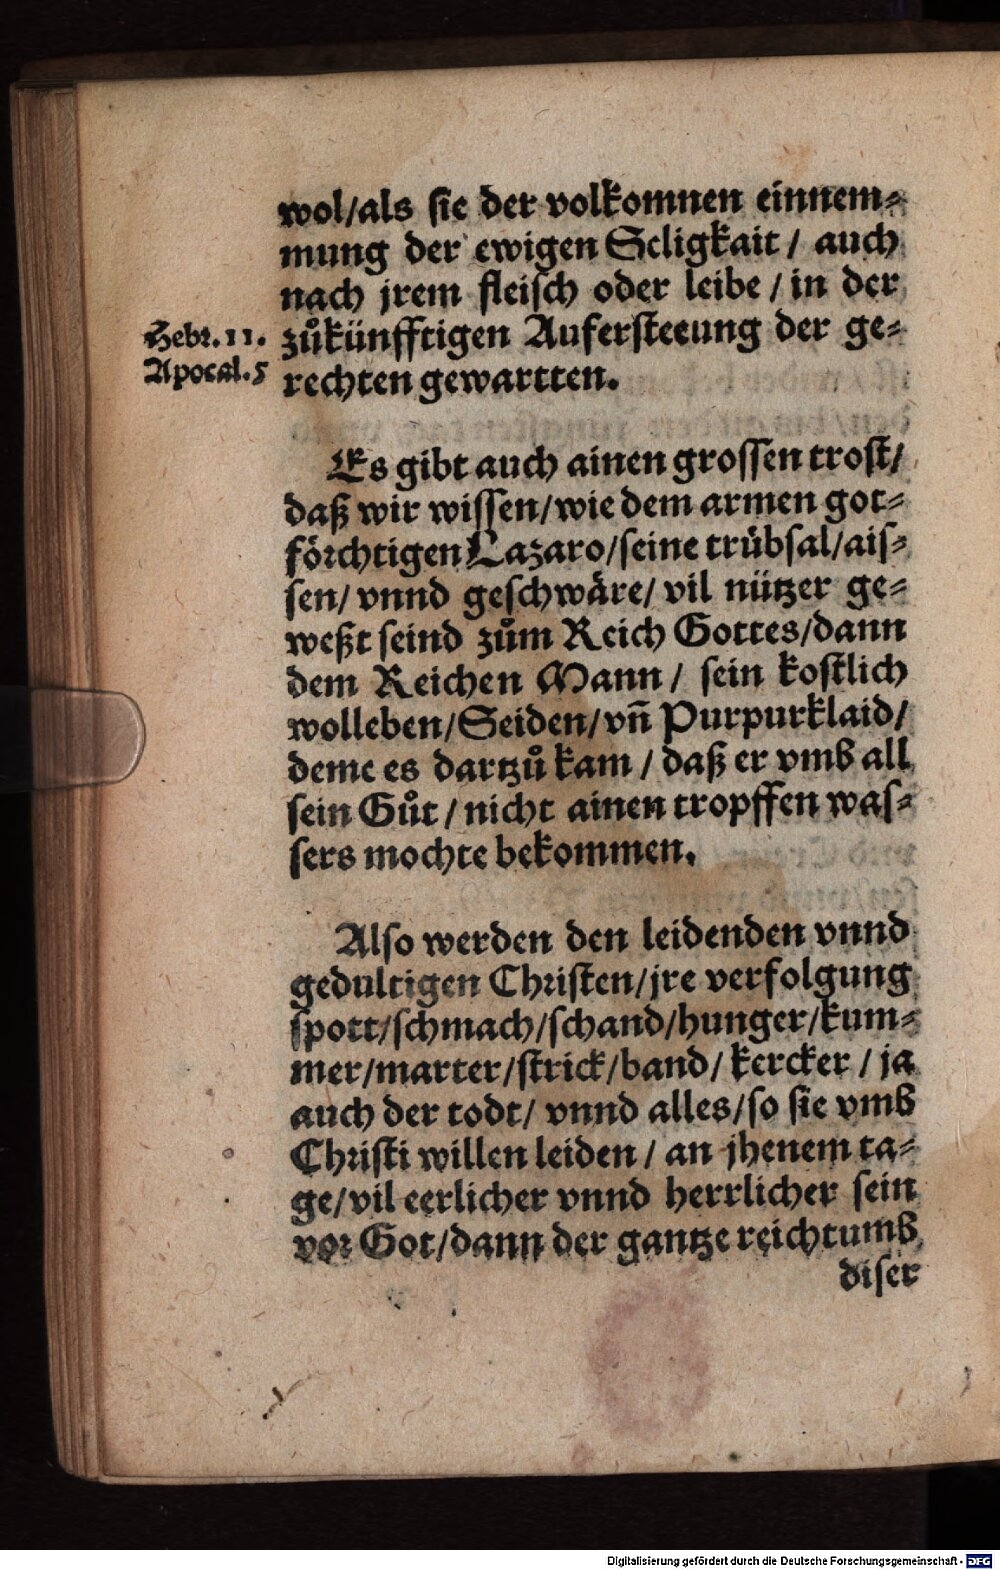 wol/als sie der volkomnen einnem-
mung der ewigen Seligkait / auch
nach jrem fleisch oder leibe / in der
Hebr. 11. zůkünfftigen Aufersteeung der ge-
Apocal. 5 rechten gewartten.
Es gibt auch ainen grossen trost/
daß wir wissen/wie dem armen got-
förchtigen Lazaro/seine trübsal/ais-
sen/ vnnd geschwäre/ vil nützer ge-
weßt seind zům Reich Gottes/dann
dem Reichen Mann / sein kostlich
wolleben/Seiden/vn̄ Purpurklaid/
deme es dartzů kam / daß er vmb all
sein Gůt / nicht ainen tropffen was-
sers mochte bekommen.
Also werden den leidenden vnnd
gedultigen Christen/jre verfolgung
spott/schmach/schand/hunger/kum-
mer/marter/strick/band/ kercker / ja
auch der todt/ vnnd alles/so sie vmb
Christi willen leiden / an jhenem ta-
ge/vil eerlicher vnnd herrlicher sein
vor Got/dann der gantze reichtumb
diser
Digitalisierung gefördert durch die Deutsche Forschungsgemeinschaft - DFG